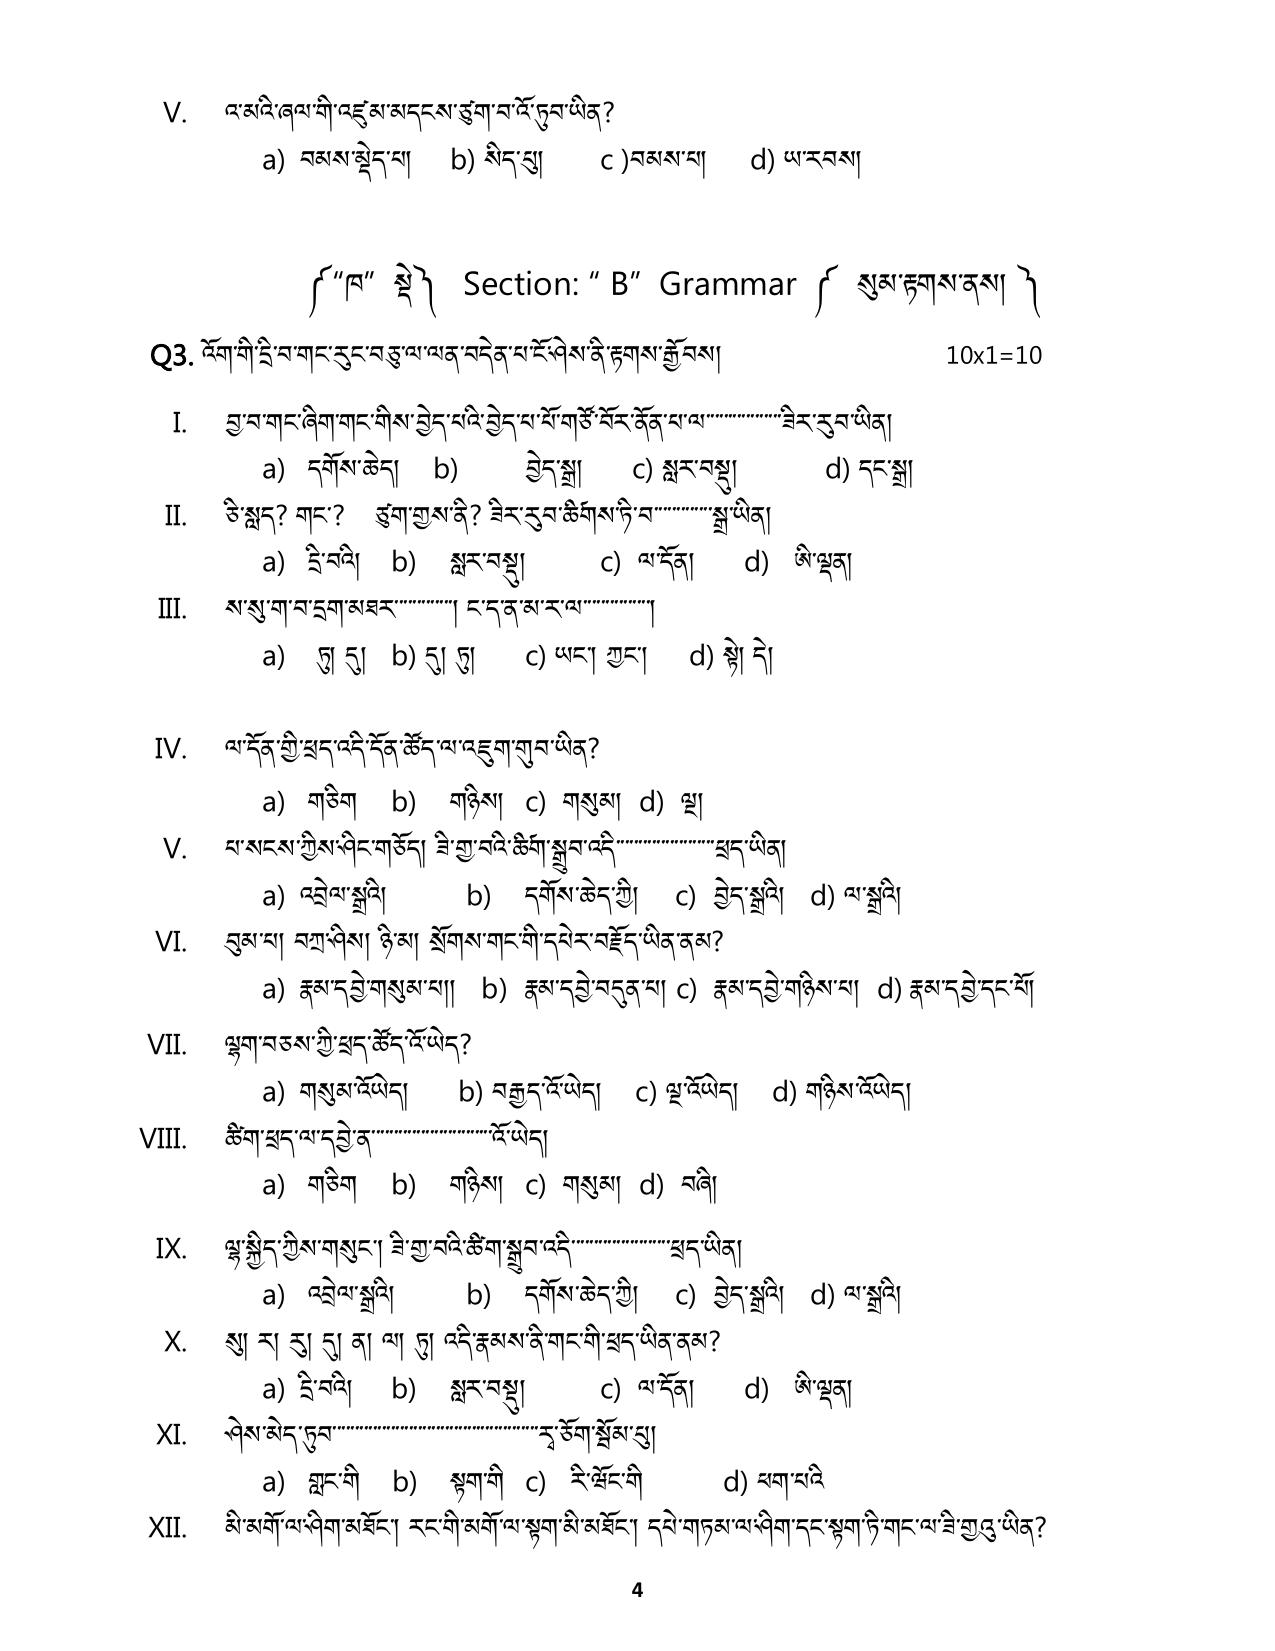 V. ཨ་མའི་ཞལ་གི་འཛུམ་མདངས་ཙུག་བ་འོ་ཏུབ་ཡིན?
a) བམས་སྡེད་པ། b) སིད་པུ། c )བམས་པ། d) ཡ་རབས།
༼“ཁ” སྡེ༽ Section: “ B” Grammar ༼ སུམ་རྟགས་ནས། ༽
Q3. འོག་གི་དྲི་བ་གང་རུང་བཅུ་ལ་ལན་བདེན་པ་ངོ་ཤེས་ནི་རྟགས་རྒྱོབས། 10x1=10
I. བྱ་བ་གང་ཞིག་གང་གིས་བྱེད་པའི་བྱེད་པ་པོ་གཙོ་བོར་ནོན་པ་ལ་་་་་་་་་་་་་་་་་ཟེར་རུབ་ཡིན།
a) དགོས་ཆེད། b) བྱེད་སྒྲ། c) སླར་བསྡུ། d) དང་སྒྲ།
II. ཅི་སླད? གང་? ཙུག་གྱས་ནི? ཟེར་རུབ་ཚིགས་ཏི་བ་་་་་་་་་་་་་་སྒྲ་ཡིན།
a) དྲི་བའི། b) སླར་བསྡུ། c) ལ་དོན། d) ཨི་ལྡན།
III. ས་སུ་ག་བ་དྲག་མཐར་་་་་་་་་་་་་། ང་ད་ན་མ་ར་ལ་་་་་་་་་་་་་་་།
a) ཏུ། དུ། b) དུ། ཏུ། c) ཡང་། ཀྱང་། d) སྟེ། དེ།
IV. ལ་དོན་གྱི་ཕྲད་འདི་དོན་ཚོད་ལ་འཇུག་གུབ་ཡིན?
a) གཅིག b) གཉིས། c) གསུམ། d) ལྔ།
V. པ་སངས་ཀྱིས་ཤིང་གཅོད། ཟི་གྱ་བའི་ཚིག་སྒྲུབ་འདི་་་་་་་་་་་་་་་་་་་་་་ཕྲད་ཡིན།
a) འབྲེལ་སྒྲའི། b) དགོས་ཆེད་ཀྱི། c) བྱེད་སྒྲའི། d) ལ་སྒྲའི།
VI. བུམ་པ། བཀྲ་ཤིས། ཉི་མ། སྲོགས་གང་གི་དཔེར་བརྗོད་ཡིན་ནམ?
a) རྣམ་དབྱེ་གསུམ་པ།། b) རྣམ་དབྱེ་བདུན་པ། c) རྣམ་དབྱེ་གཉིས་པ། d) རྣམ་དབྱེ་དང་པོ།
VII. ལྷག་བཅས་ཀྱི་ཕྲད་ཚོད་འོ་ཡེད?
a) གསུམ་འོ་ཡེད། b) བརྒྱད་འོ་ཡེད། c) ལྔ་འོ་ཡེད། d) གཉིས་འོ་ཡེད།
VIII. ཚིག་ཕྲད་ལ་དབྱེ་ན་་་་་་་་་་་་་་་་་་་་་་་་་་འོ་ཡེད།
a) གཅིག b) གཉིས། c) གསུམ། d) བཞི།
IX. ལྷ་སྐྱིད་ཀྱིས་གསུང་། ཟི་གྱ་བའི་ཚིག་སྒྲུབ་འདི་་་་་་་་་་་་་་་་་་་་་་ཕྲད་ཡིན།
a) འབྲེལ་སྒྲའི། b) དགོས་ཆེད་ཀྱི། c) བྱེད་སྒྲའི། d) ལ་སྒྲའི།
X. སུ། ར། རུ། དུ། ན། ལ། ཏུ། འདི་རྣམས་ནི་གང་གི་ཕྲད་ཡིན་ནམ?
a) དྲི་བའི། b) སླར་བསྡུ། c) ལ་དོན། d) ཨི་ལྡན།
XI. ཤེས་མེད་ཏུབ་་་་་་་་་་་་་་་་་་་་་་་་་་་་་་་་་་་་་་་་་་་་་་རྭ་ཅོག་སྦོམ་པུ།
a) གླང་གི b) སྟག་གི c) རི་བོང་གི d) ཕག་པའི
XII. མི་མགོ་ལ་ཤིག་མཐོང་། རང་གི་མགོ་ལ་སྟག་མི་མཐོང་། དཔེ་གཏམ་ལ་ཤིག་དང་སྟག་ཏི་གང་ལ་ཟི་གྱའུ་ཡིན?
4